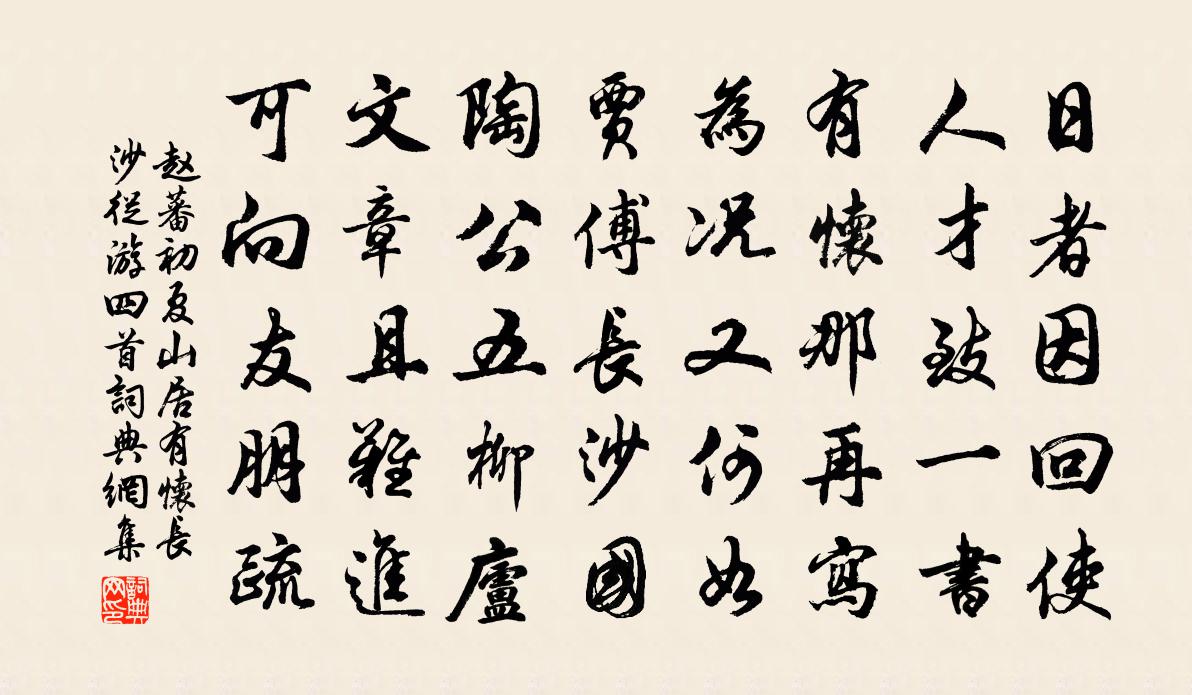 日者因回使
人才致一書
有懷那再寫
為況又何如
賈傅長沙國
陶公五柳廬
文章且難進
可向友朋疏
赵蕃初夏山居有懷長
沙從游四首詞典網集
詞典
网印